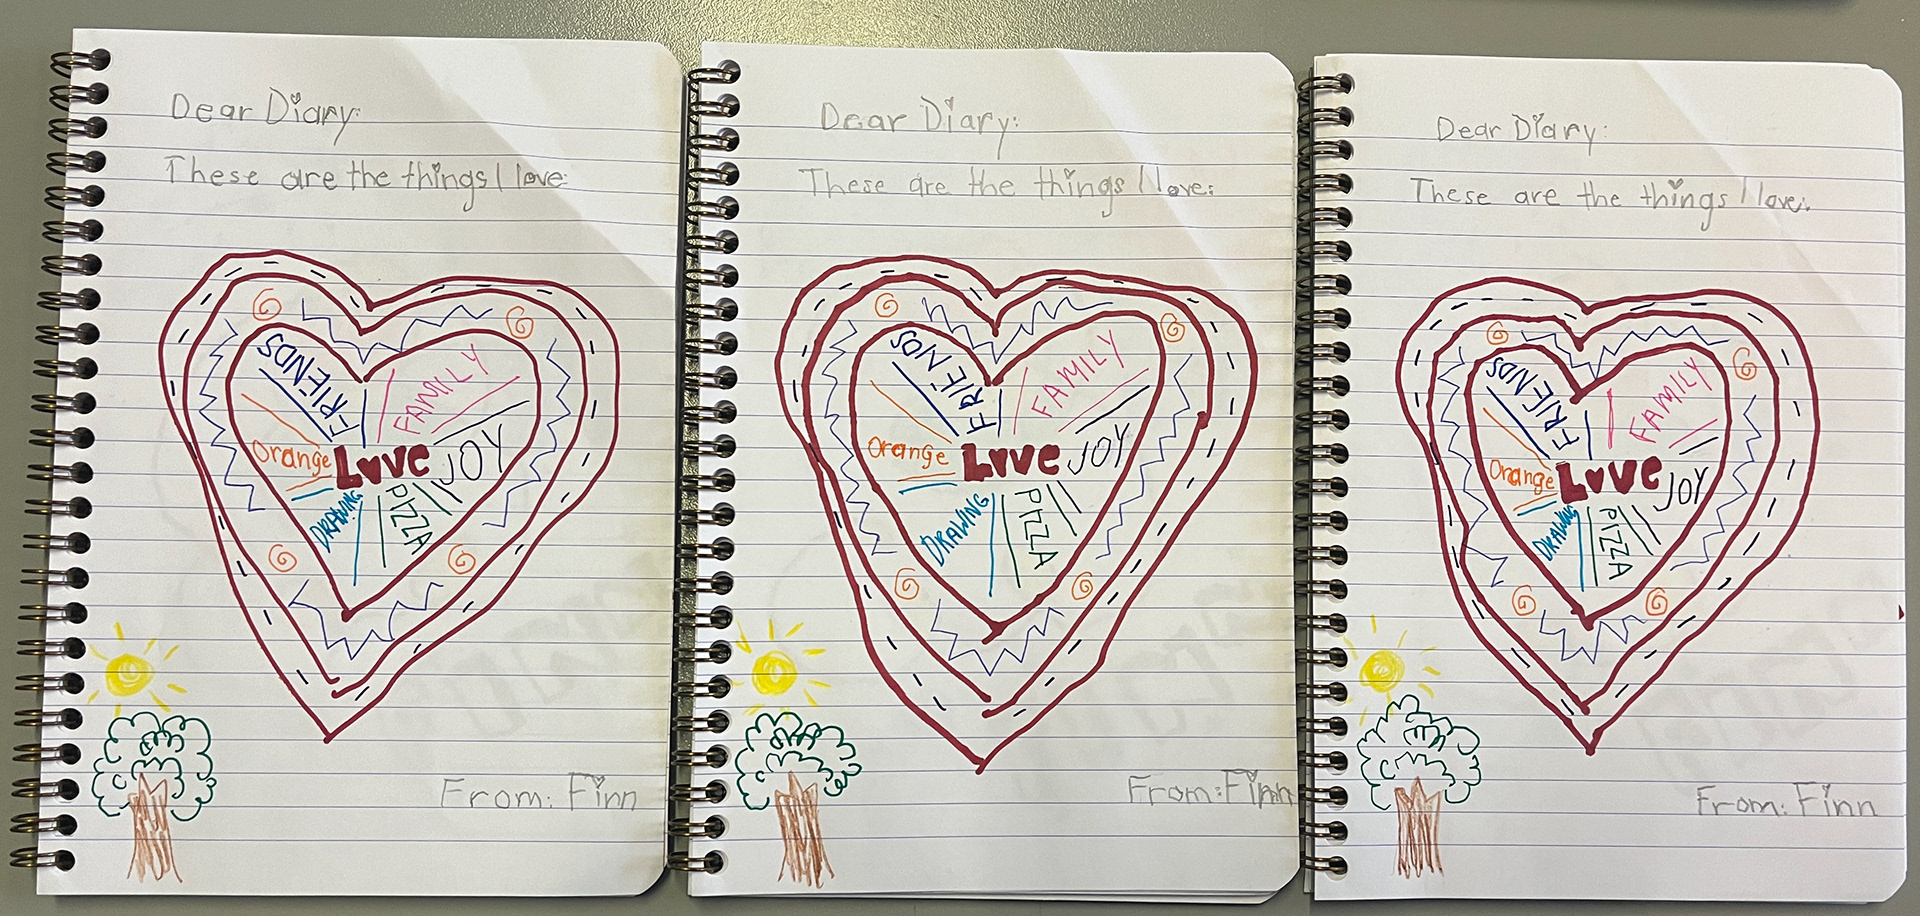 Dear Diary:
These are the things I love:
FRIENDS
FAMILY
Orange
Love
JOY
DRAWING
PIZZA
From: Finn
Dear Diary:
These are the things I love:
FRIENDS
FAMILY
Orange
Love
JOY
DRAWING
PIZZA
From: Finn
Dear Diary:
These are the things I love:
FRIENDS
FAMILY
Orange
Love
JOY
DRAWING
PIZZA
From: Finn